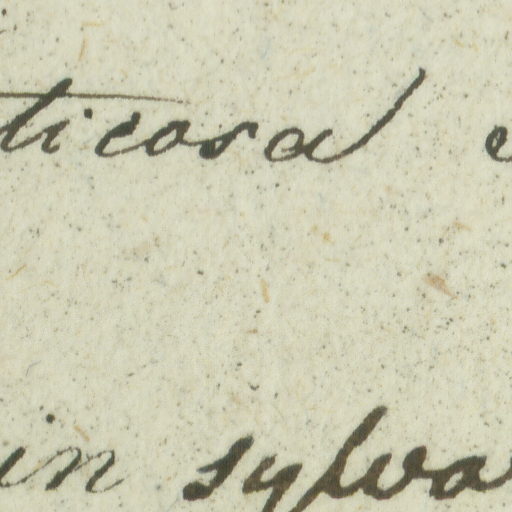 ticosa
in sylva